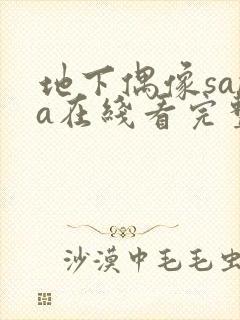 地下偶像sa
a在线看完
沙漠中毛毛虫